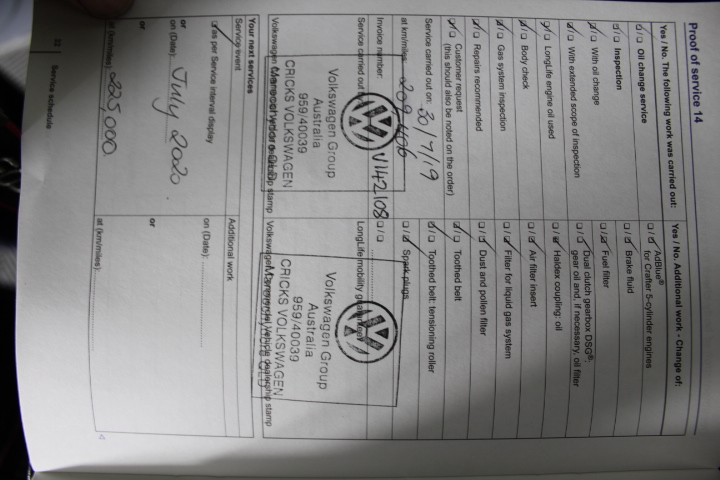 Proof of service 14
Yes / No. The following work was carried out:
Oil change service
Inspection
With oil change
With extended scope of inspection
LongLife engine oil used
Body check
Gas system inspection
Repairs recommended
Customer request
(this should also be noted on the order)
Service carried out on: 20/7/19
at km/miles: 209406
Invoice number: V142108
Service carried out
Volkswagen Group
Australia
959/40039
CRICKS VOLKSWAGEN
Maroochydore QLD
Yes / No. Additional work - Change of:
AdBlue®
for Crafter 5-cylinder engines
Brake fluid
Fuel filter
Dual clutch gearbox DSG®:
gear oil and, if necessary, oil filter
Haldex coupling: oil
Air filter insert
Filter for liquid gas system
Dust and pollen filter
Toothed belt
Toothed belt: tensioning roller
Spark plugs
LongLife mobility guarantee
Volkswagen Group
Australia
959/40039
CRICKS VOLKSWAGEN
Maroochydore QLD
Your next services
Service event
as per Service interval display
or
on (Date): July 2020.
or
at (km/miles): 225,000
Additional work
on (Date):
or
at (km/miles):
32 Service schedule